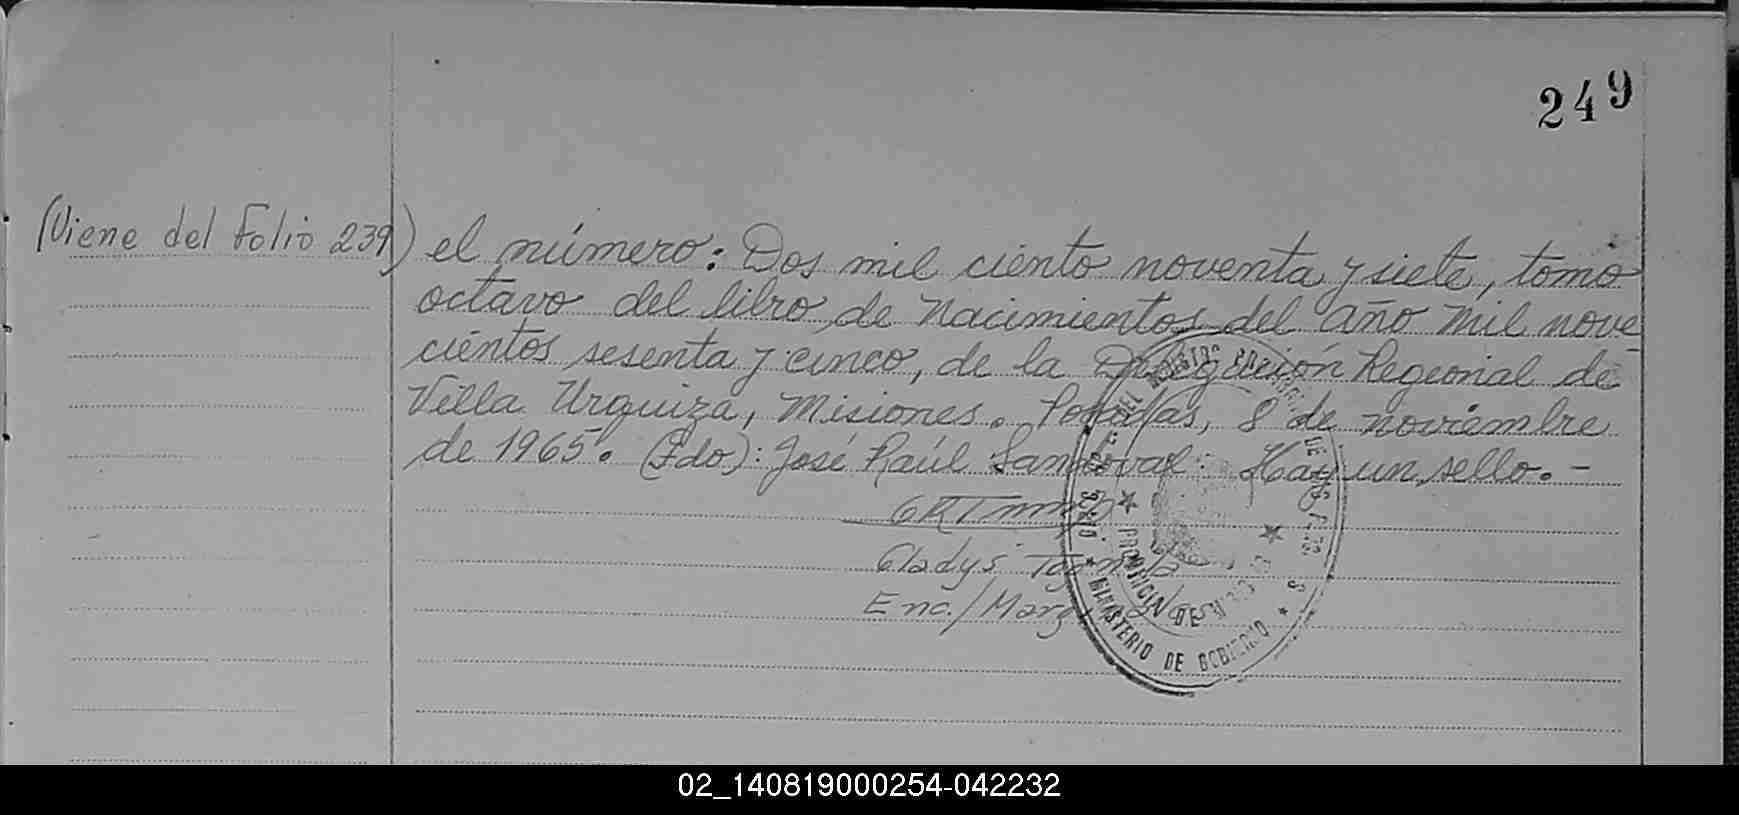 249
(Viene del Folio 239) el número: Dos mil ciento noventa y siete, tomo
octavo del libro de Nacimientos del año mil nove
cientos sesenta y cinco, de la Delegación Regional de
Villa Urquiza, Misiones. Posadas, 8 de noviembre
de 1965. (Fdo): José Raúl Sandoval. Hay un sello. -
Gladys
Enc./Marg
PROVINCIA DE
MINISTERIO DE GOBIERNO
02_140819000254-042232